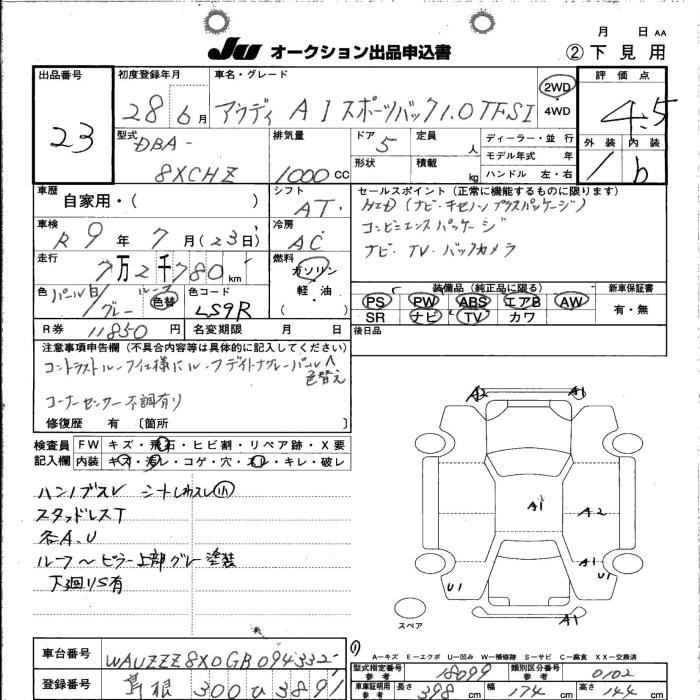 月 日 AA
JU オークション出品申込書
② 下見用
出品番号
23
初度登録年月
28 6月
車名・グレード
アウディ A1スポーツバック1.0TFSI
2WD
4WD
評価点
4.5
型式
DBA-
8XCHZ
排気量
1000 CC
ドア
5
定員
人
形状
積載
kg
ディーラー・並行
モデル年式 年
ハンドル 左・右
外装 内装
1 b
車歴
自家用・( )
シフト
AT
セールスポイント (正常に機能するものに限ります)
HID(ナビ・キセノンプラスパッケージ)
コンビニエンスパッケージ
ナビ・TV・バックカメラ
車検
R 9年 7月(23日)
冷房
AC
走行
7万2千780km
燃料
ガソリン
軽・油
( )
色
パール白/グレー
ルーフ
色替
色コード
LS9R
装備品(純正品に限る)
新車保証書
PS PW ABS エアB AW
SR ナビ TV カワ
有・無
R券 11850円
名変期限 月 日
後日品
注意事項申告欄(不具合内容等は具体的に記入してください)
コントラストルーフ仕様にルーフデイトナグレーパールへ
色替え
コーナーセンサー不調有り
修復歴 有〔箇所 〕
検査員
記入欄
FW キズ・飛石・ヒビ割・リペア跡・X要
内装 キズ・汚レ・コゲ・穴・スレ・キレ・破レ
ハンドブスレ シートしわスレ小
スタッドレスT
各A、U
ルーフ〜ピラー上部グレー塗装
下廻りS有
A2 A1
A1
A2
A1
U1
U1
A1
スペア
A-キズ E-エクボ U-凹み W-補修跡 S-サビ C-腐食 XX-交換済
車台番号
WAUZZZ8X0GB094332
登録番号
300 ひ 3891
型式指定番号
参考
18099
類別区分番号
参考
0102
車庫証明用
参考
長さ
398 cm
幅
174 cm
高さ
144 cm